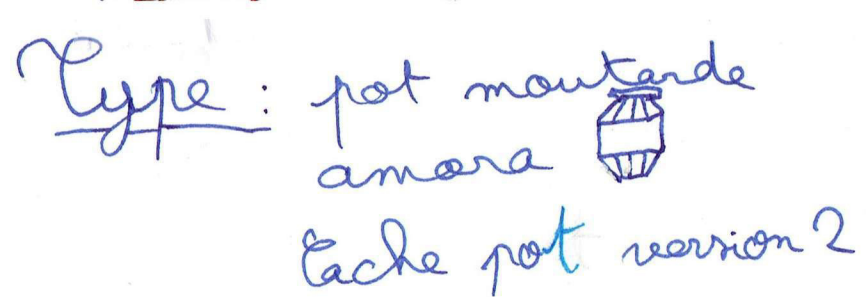 Type : pot moutarde
amora
Cache pot version 2